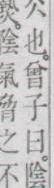 也。曾子曰。陰
熱。陰氣脅之不